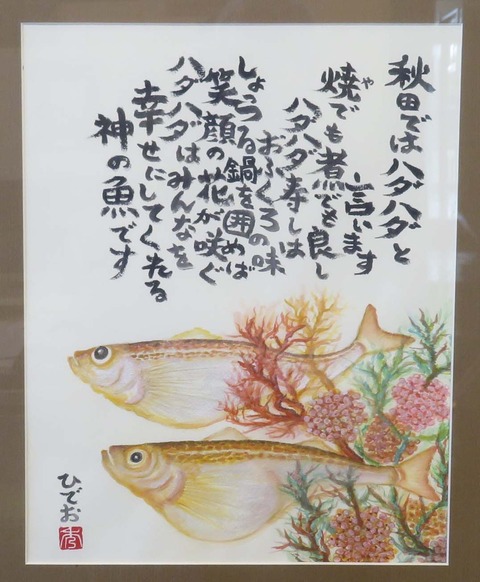 秋田ではハダハダと
言います
焼でも煮でも良し
ハダハダ寿しは
おふくろの味
しょっつる鍋を囲めば
笑顔の花が咲ぐ
ハダハダはみんなを
幸せにしてくれる
神の魚です
ひでお
秀